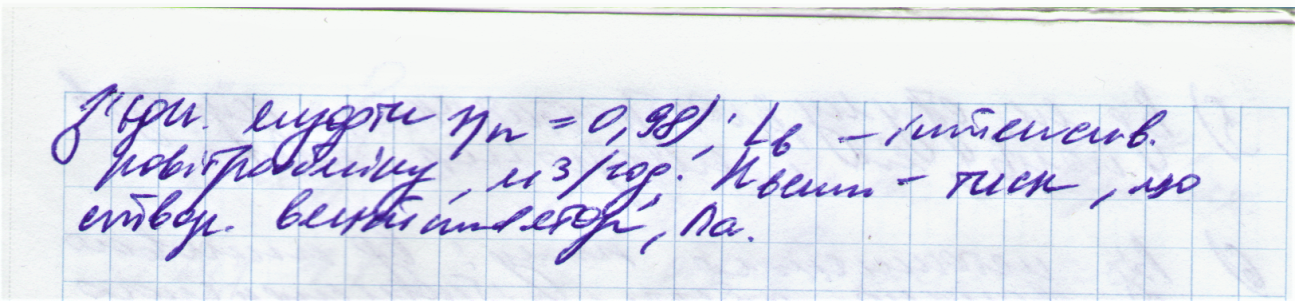 з'єдн. муфти ηп = 0,98); Lв – інтенсив.
повітрообміну, м3/год; Hвент – тиск, що
створ. вентилятор, Па.